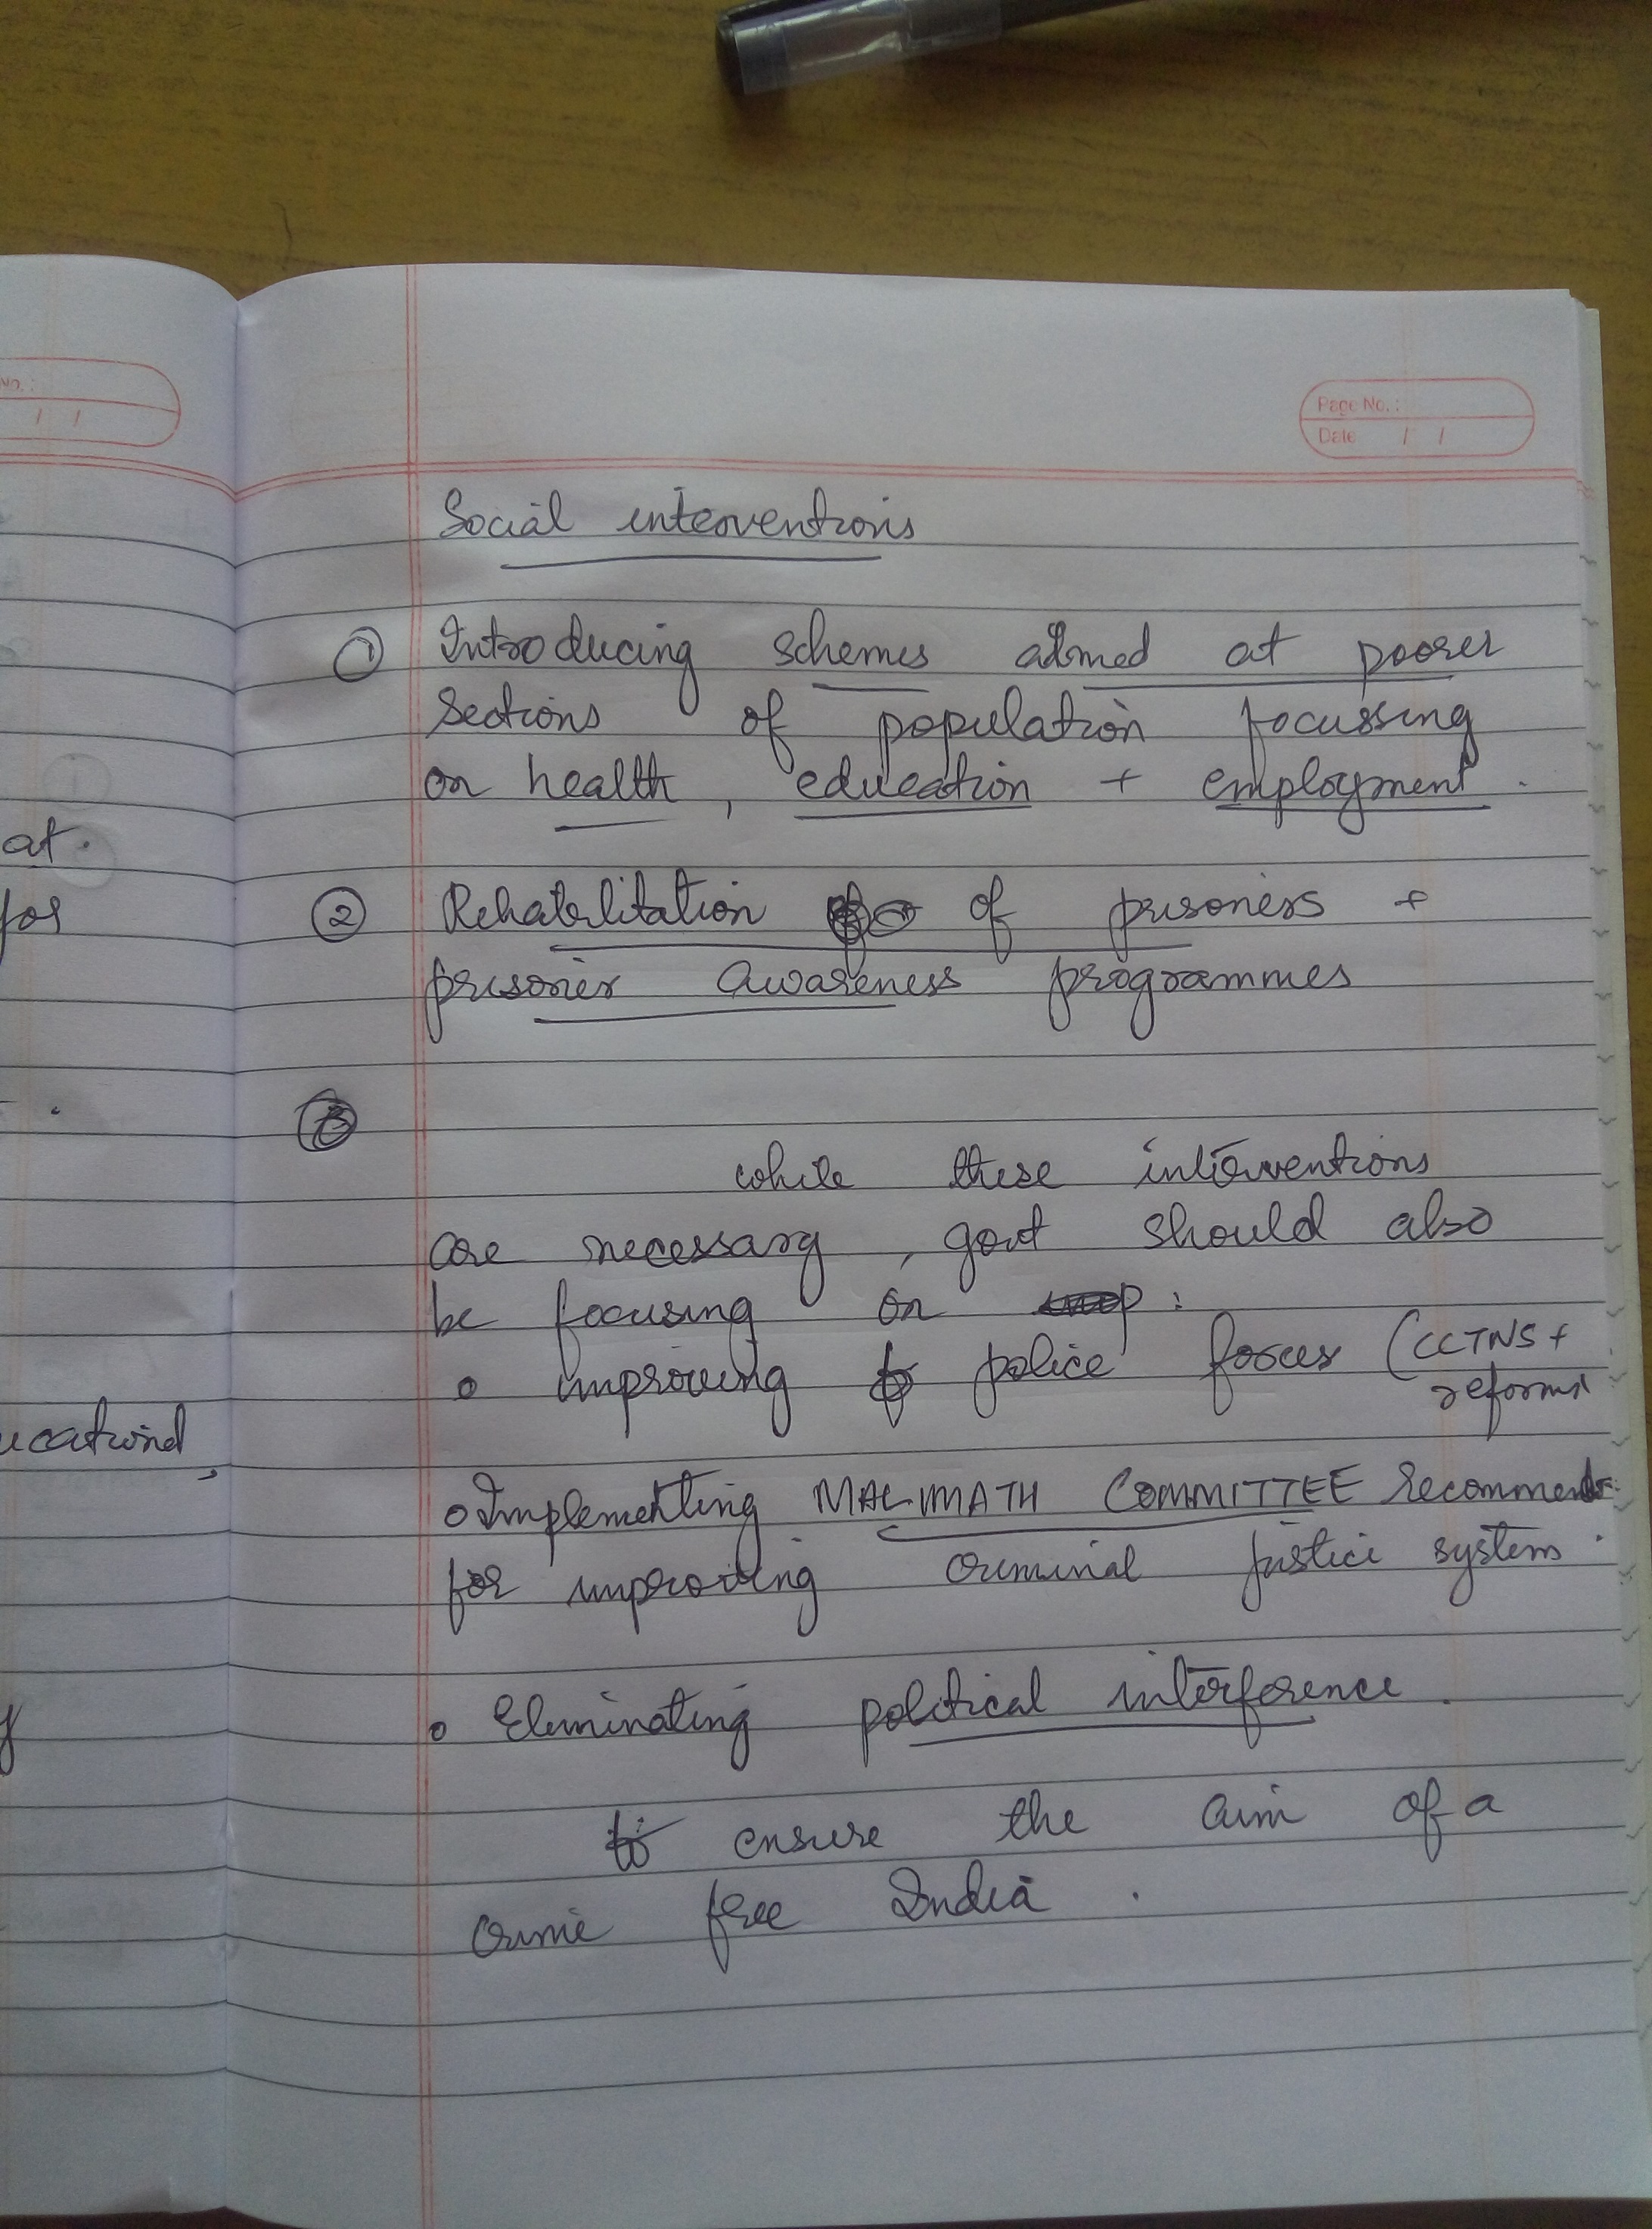 No. :
/ /
at.
for
ucational,
y
Page No. :
Date / /
Social interventions
① Introducing schemes aimed at poorer
sections of population focussing
on health, education + employment.
② Rehabilitation of prisoners +
prisoner awareness programmes
while these interventions
are necessary, govt should also
be focusing on :
o improving police forces (CCTNS +
reforms
o Implementing MALIMATH COMMITTEE recommend
for improving criminal justice system.
o Eliminating political interference.
to ensure the aim of a
crime free India.